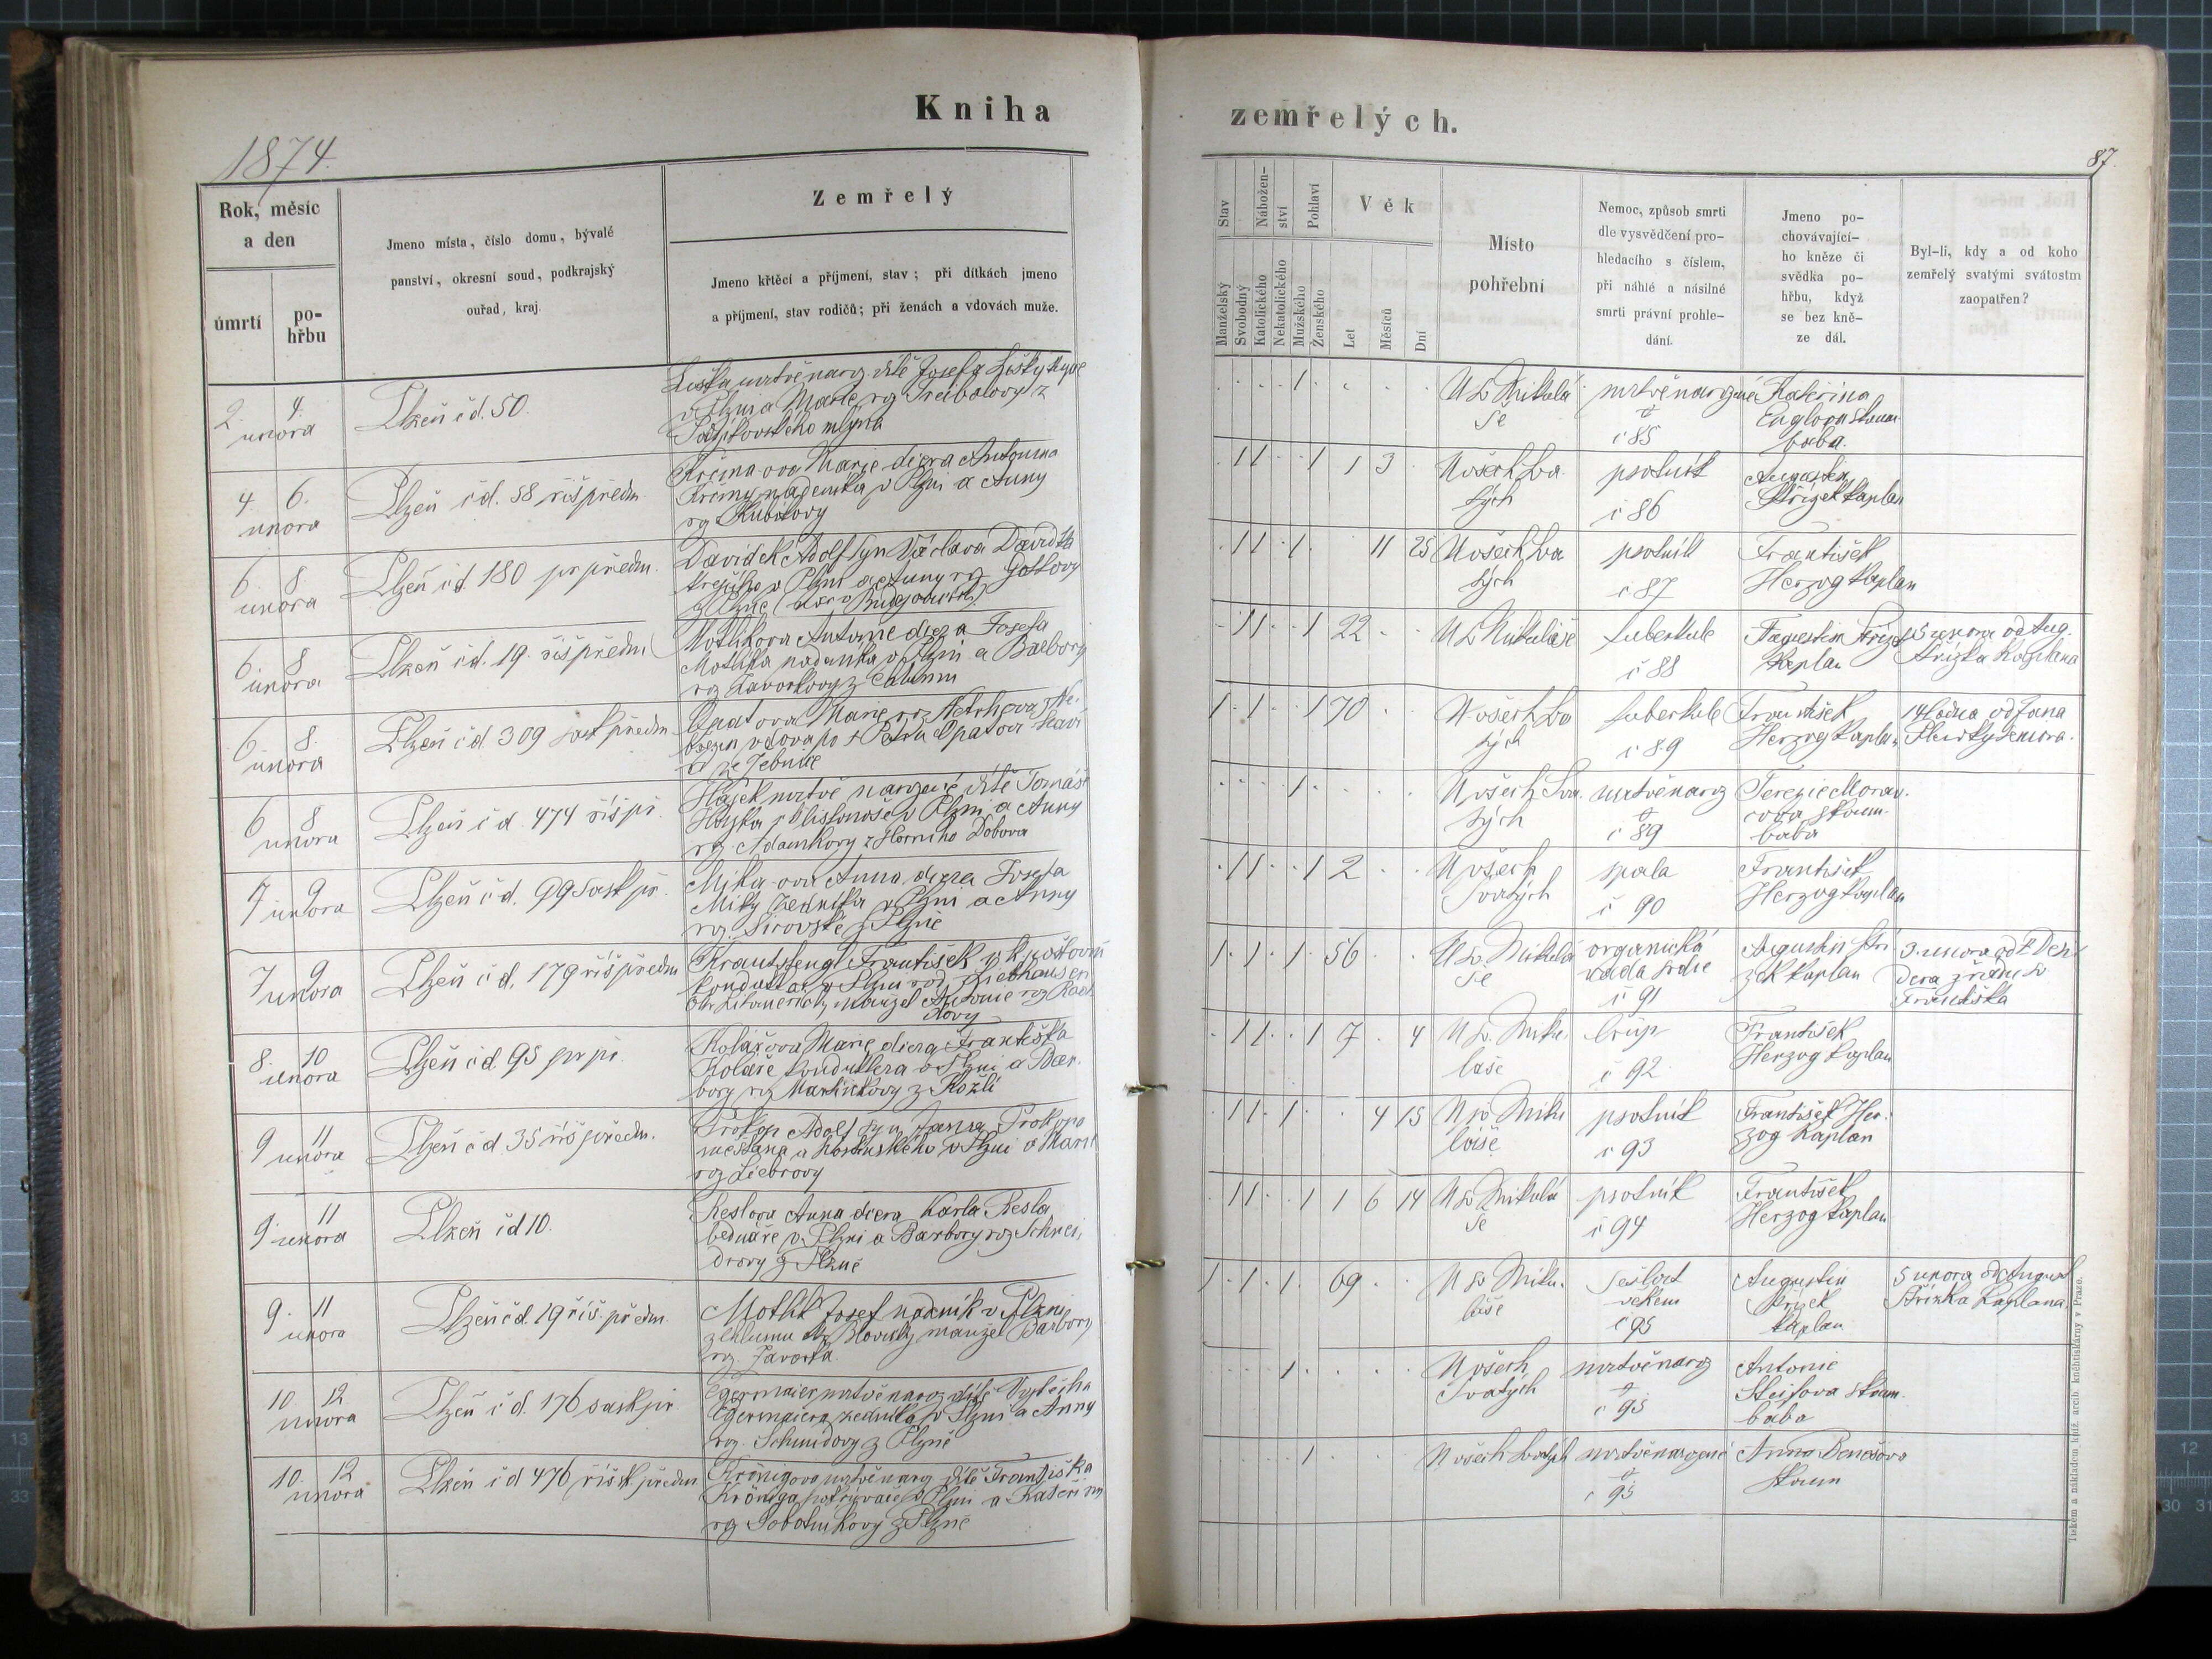 Kniha
zemřelých.
1874.
87.
Rok, měsíc
a den
úmrtí
po-
hřbu
Jmeno místa, číslo domu, bývalé
panství, okresní soud, podkrajský
ouřad, kraj.
Zemřelý
Jmeno křtěcí a příjmení, stav; při dítkách jmeno
a příjmení, stav rodičů; při ženách a vdovách muže.
Stav
Nábožen-
ství
Pohlaví
Věk
Manželský
Svobodný
Katolického
Nekatolického
Mužského
Ženského
Let
Měsíců
Dní
Místo
pohřební
Nemoc, způsob smrti
dle vysvědčení pro-
hledacího s číslem,
při náhlé a násilné
smrti právní prohle-
dání.
Jmeno po-
chovávající-
ho kněze či
svědka po-
hřbu, když
se bez kně-
ze dál.
Byl-li, kdy a od koho
zemřelý svatými svátostm
zaopatřen?
2. 4.
unora
Plzeň čd. 50.
Liška mrtvě naroz. dítě Josefa Lišky
v Plzni a Marie roz
mlýna
1
U sv Mikulá
še
mrtvěnarozené
č 85
Kateřina
Englova
baba.
4. 6.
unora
Plzeň čd. 58 říš předm.
Krčma-ova Marie dcera Antonína
Krčmy nádeníka v Plzni a Anny
roz
1 1 1 1 3
U všech Sva
tých
psotník
č 86
Augustin
Střízek kaplan
6. 8.
unora
Plzeň čd. 180 pr předm.
Davídek Adolf syn Václava Davídka
krejčího v Plzni a Anny roz
z Plzně
1 1 1 11 25
U všech Sva
tých
psotník
č 87
František
Herzog kaplan
6. 8
unora
Plzeň čd. 19. říš předm
Mothkova Antonie dcera Josefa
Mothka nádeníka v Plzni a Barbory
roz Zavorkovy z Chlumu
1 1 1 22
U sv Mikuláše
tuberkule
č 88
Augustin Střízek
kaplan
5 unora od Aug.
Střízka kaplana
6. 8.
unora
Plzeň čd 309 sask předm
Opatova Marie roz
vdova po † Petru Opatovi
1 1 1 70
U všech Sva
tých
tuberkule
č 89
František
Herzog kaplan
14 ledna od Jana
6 8
unora
Plzeň čd. 474 říš př.
Hajek mrtvě narozené dítě Tomáše
Hajka listonoše v Plzni a Anny
roz. Adamkovy z Horního
1
U všech Sva.
tých
mrtvěnaroz
č 89
Terezie Morav.
cova skoum.
baba
7 9
unora
Plzeň čd. 99 sask př.
Mika-ova Anna dcera Josefa
Miky zedníka v Plzni a Anny
roz. Sirovské z Plzně
1 1 1 2
U všech
Svatých
spala
č 90
František
Herzog kaplan
7 9
unora
Plzeň čd. 179 říš předm
František
kondukter v Plzni
manžel Antonie roz
1 1 1 56
U sv. Mikulá
še
organická
vada srdce
č 91
Augustin Stří
zek kaplan
3 unora od
Františka
8. 10
unora
Plzeň čd 95 pr př.
Kolářova Marie dcera Františka
Koláře konduktera v Plzni a Bar.
bory roz Martinkovy z Kožlí
1 1 1 7 4
U sv. Miku
láše
krup
č 92
František
Herzog kaplan
9 11
unora
Plzeň čd 35 říš předm.
Prokop Adolf syn Jana Prokopa
měšťana a hostinského v Plzni a Marie
roz Liebrovy
1 1 1 4 15
U sv Miku
láše
psotník
č 93
František Her.
zog kaplan
9 11
unora
Plzeň čd 10.
Reslova Anna dcera Karla Resla
bednáře v Plzni a Barbory roz Schnei,
drovy z Plzně
1 1 1 1 6 14
U sv Mikulá
še
psotník
č 94
František
Herzog kaplan
9. 11
unora
Plzeň čd. 19 říš. předm.
Mothk Josef nádeník v Plzni
z Chlumu manžel Barbory
roz. Zavorka
1 1 1 69
U sv Miku.
láše
sešlost
věkem
č 95
Augustin
Střízek
kaplan
5 unora od August
Střízka kaplana.
10 12
unora
Plzeň čd. 176 sask př
Egermaier mrtvě naroz dítě Vojtěcha
Egermaiera zedníka v Plzni a Anny
roz. Schmidovy z Plzně
1
U všech
Svatých
mrtvěnaroz
č 95
Antonie
skoum.
baba
10. 12
unora
Plzeň čd 476 říšsk předm
Krönigova mrtvě naroz dítě Františka
Kröniga pokrývače v Plzni a Kateřiny
roz Sobotníkovy z Plzně
1
U všech Svatých
mrtvěnarozené
č 95
Anna Benešova
skoum
Tiskem a nákladem kníž. arcib. kněhtiskárny v Praze.